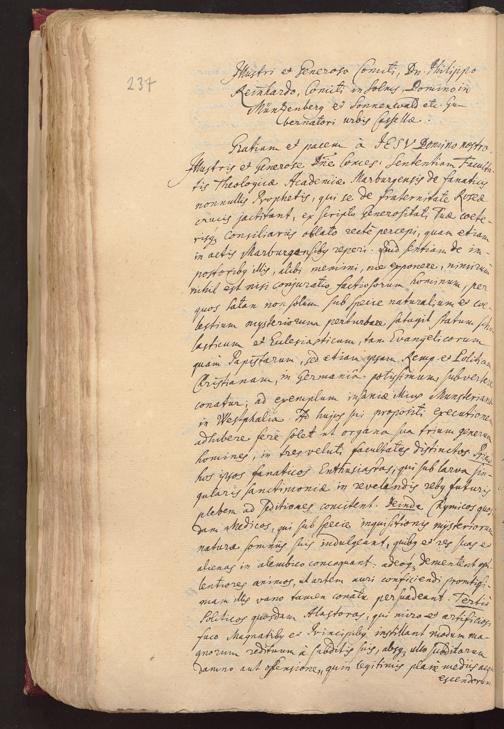 237
Illustri et Generoso Comiti, Dn. Philippo
Reinhardo, Comiti in Solms, Domino in
Müntzenberg et Sonnenwald etc. Gu-
bernatori urbis Cassellæ.
Gratiam et pacem à JESU Domino nostro.
Illustris et Generose Dne Comes. Sententiam Facul-
tis Theologicæ Academiæ Marburgensis de fanaticis
nonnullis Prophetis, qui se de fraternitate Roseæ
crucis jactitant, ex scripto Generositati Tuæ cæte-
risq, Consiliariis oblato rectè percepi, quam etiam
in actis Marburgensibus reperi. Quid sentiam de im-
postoribus illis, alibi memini, me exponere, nimirum
nihil est nisi conspiratio factiosorum hominum, per
quos Satan non solum sub specie naturalium et cœ-
lestium mysteriorum perturbare satagit statum scho-
lasticum et Ecclesiasticum, tam Evangelicorum
quàm Papistarum, sed etiam ipsam Remp. et Politiam
Christianam, in Germania potissimum, subvertere
conatur, ad exemplum insaniæ illius Munsterianæ
in Westphalia. Ad hujus sui propositi executionem
adhibere ferè solet ut organa sua trium generum
homines, in tres veluti facultates distinctos.
hos ipsos fanaticos Enthusiastas, qui sub larva sin-
gularis sanctimoniæ in revelandis rebus futuris
plebem ad seditiones concitent. Deinde Chymicos quos-
dam Medicos, qui sub specie inquisitionis mysteriorum
naturæ somniis suis indulgeant, quibus et res suas et
alienas in alembico concoquant, adeoq, dementent opu-
lentiores animos, ut artem auri conficiendi
illis vano tamen conatu persuadeant. Tertiò
Politicos quosdam Alastoras, qui miro et artificioso
fuco Magnatibus et Principibus instillant modum ma-
gnorum redituum à subditis suis, absq, ullo subditorum
damno aut offensione, quin legitimis planè mediis acqu-
escendorum